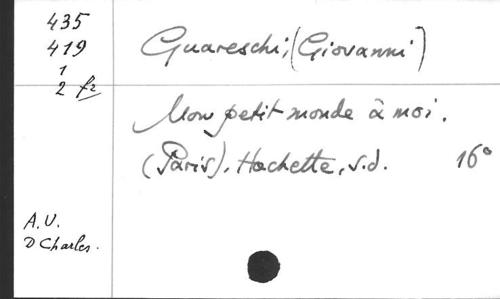 435
419
1
2 fz
Guareschi, (Giovanni)
Mon petit monde à moi.
(Paris), Hachette, s.d. 16°
A.V.
D Charles.